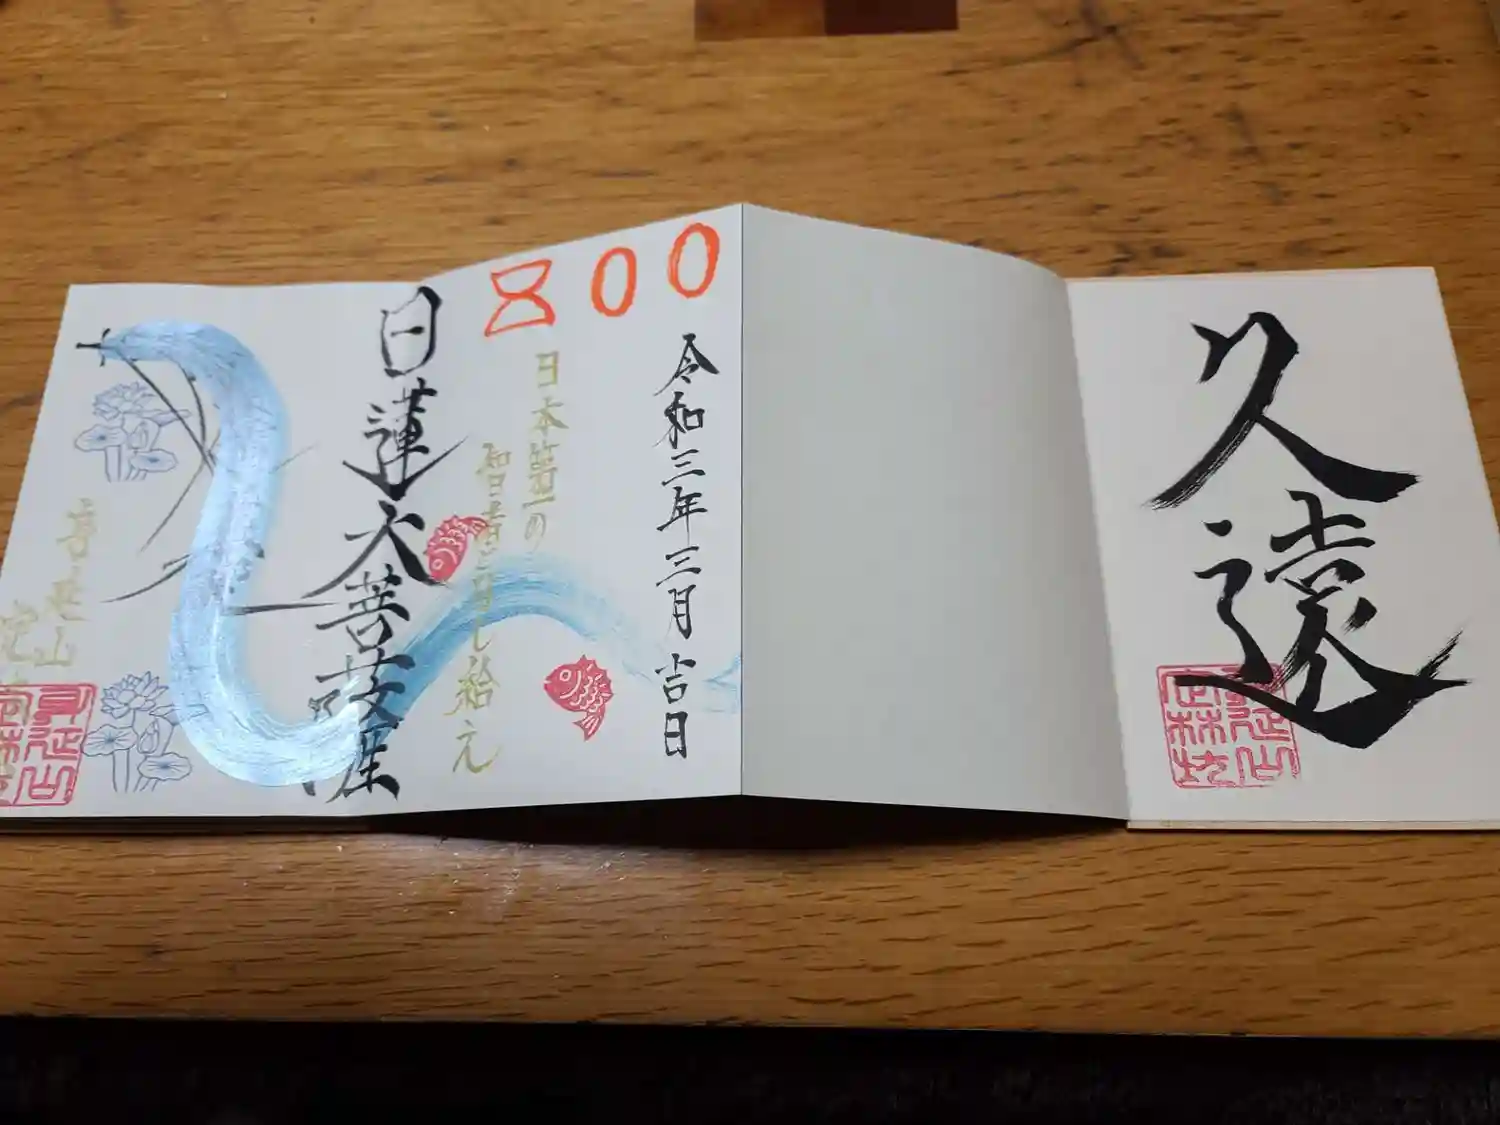 久遠
身延山
定林坊
800
令和三年三月吉日
日本第一の
智者となし給え
日蓮大菩薩
身延山
定林坊